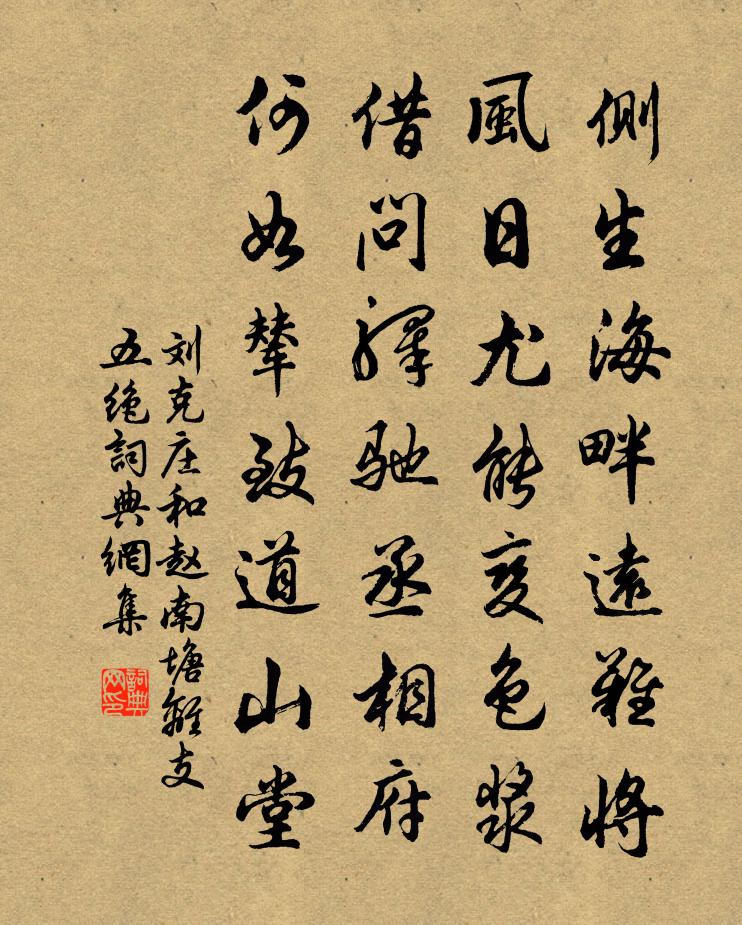 側生海畔遠難將
風日尤能變色漿
借問驛馳丞相府
何如輦致道山堂
刘克庄和赵南塘離支
五绝詞典網集
詞典网印